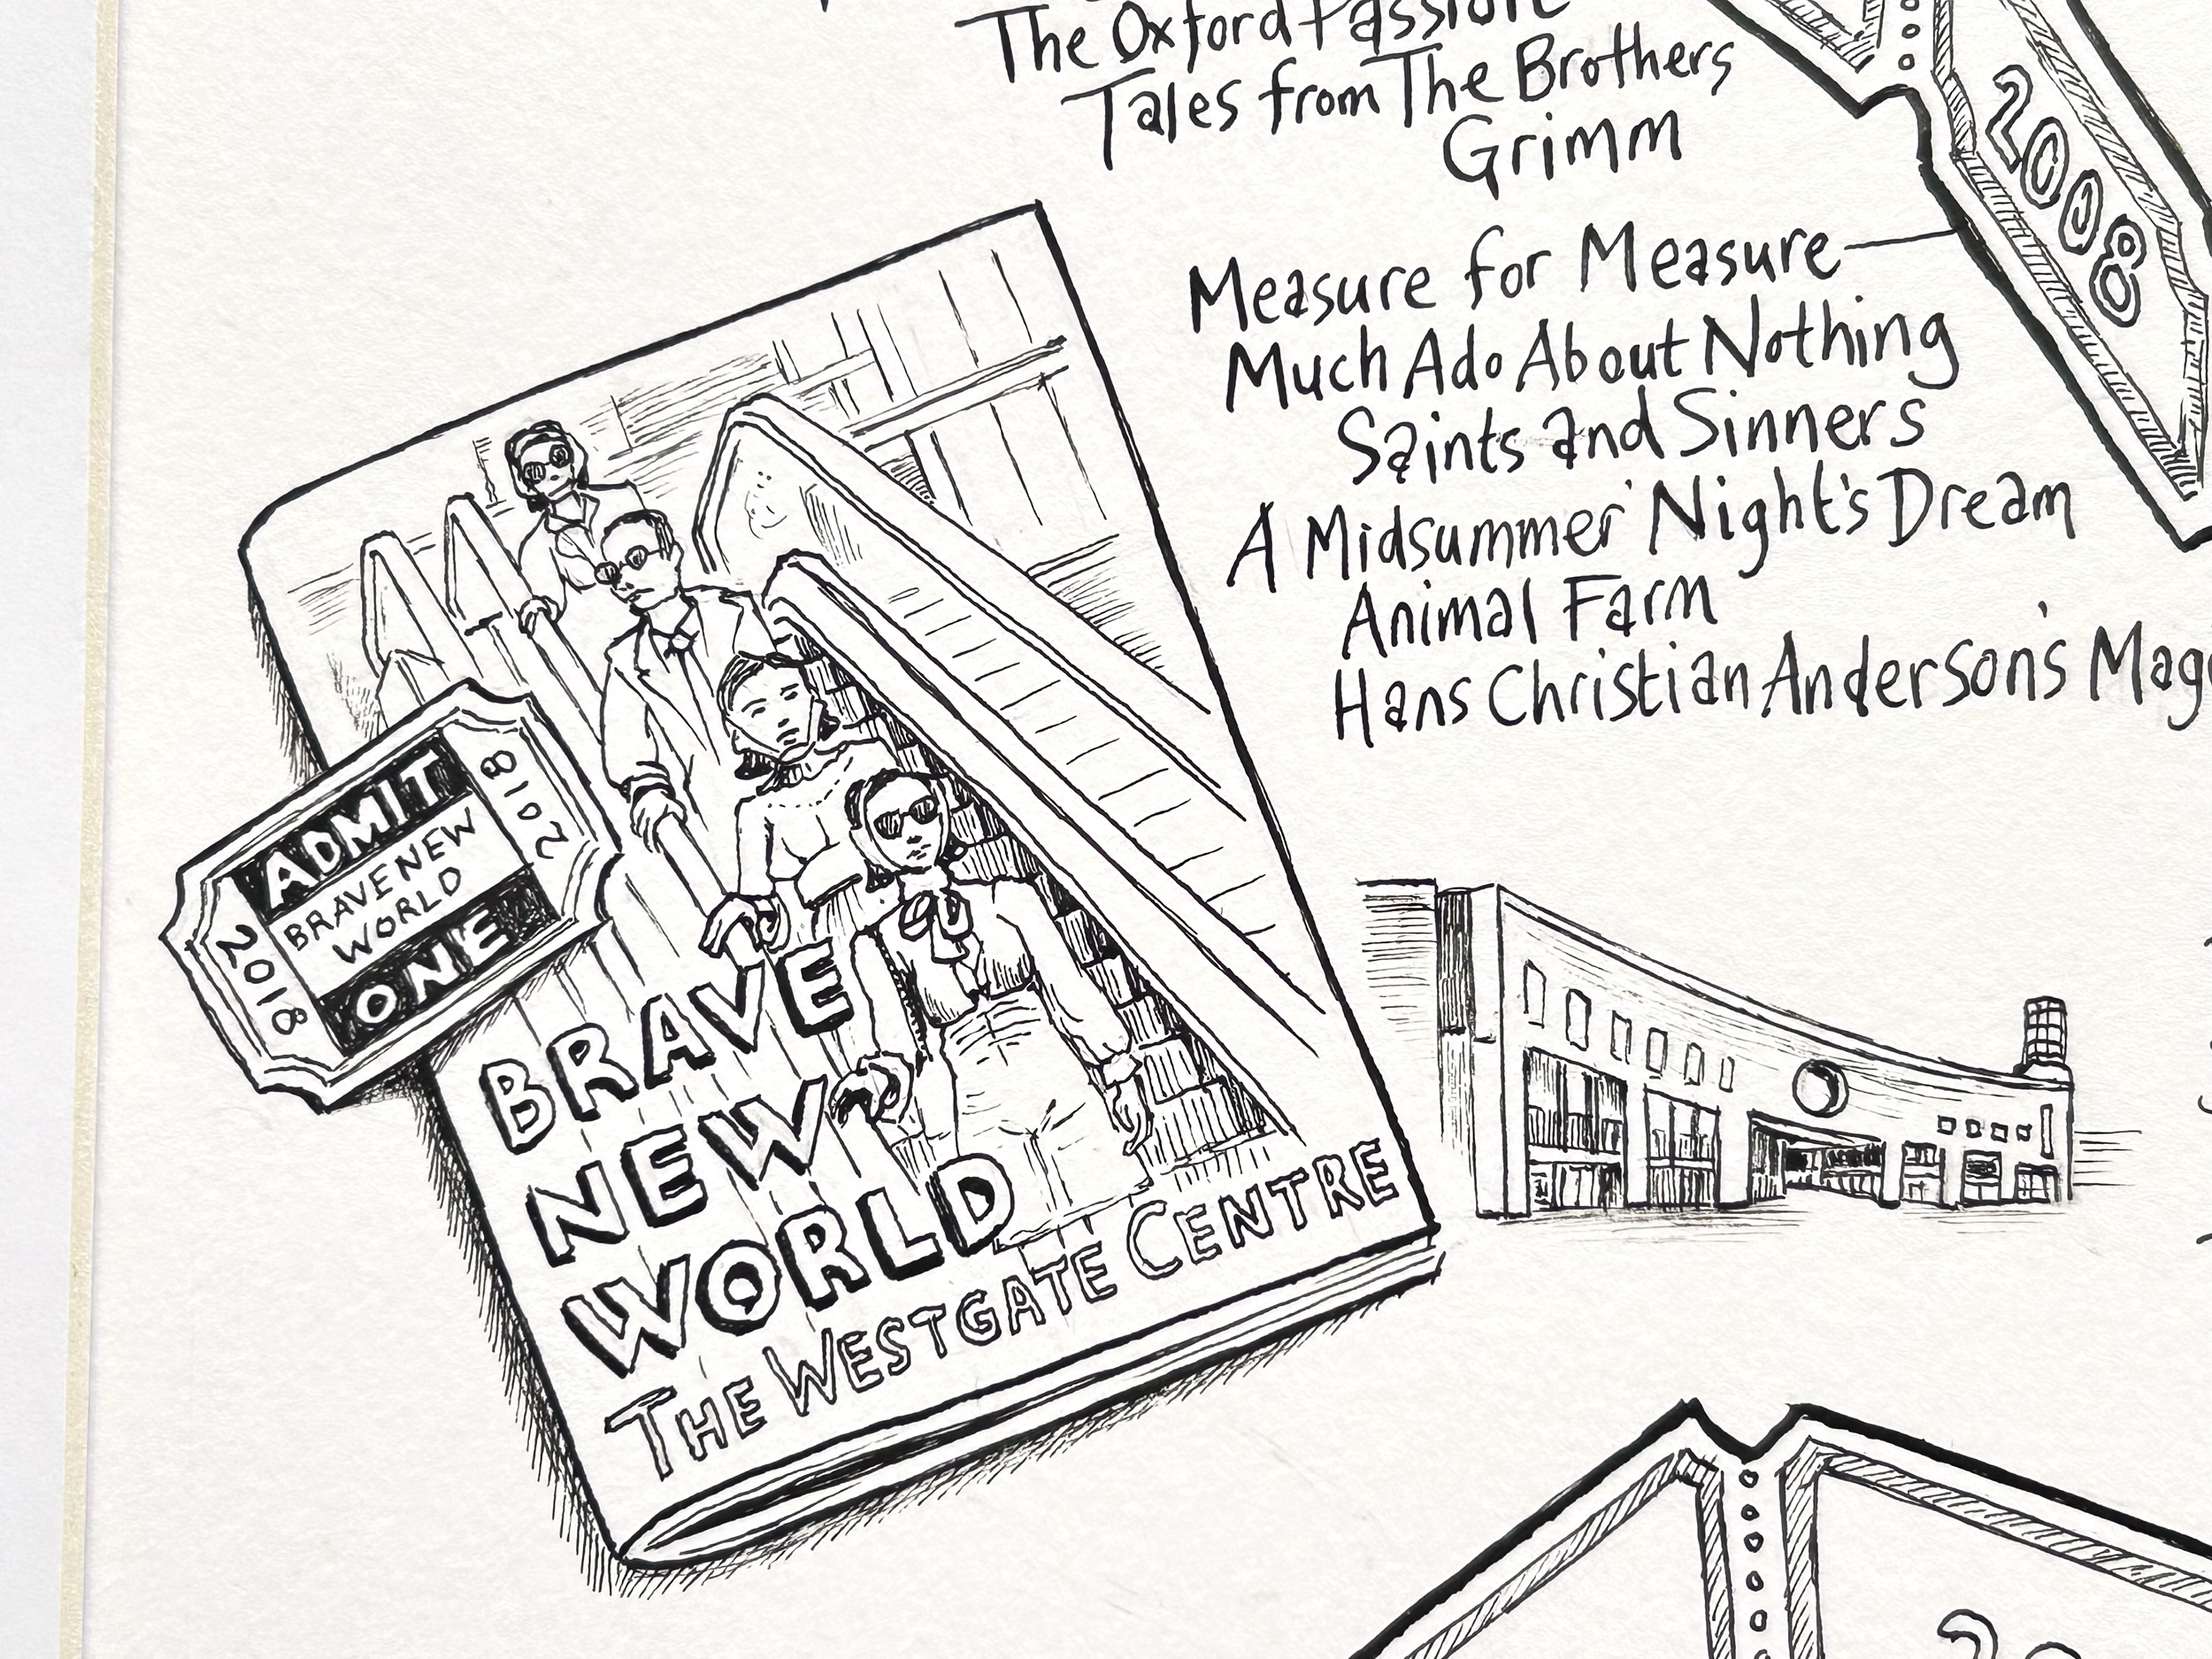 The Oxford Passion
Tales from The Brothers
Grimm
2008
Measure for Measure
Much Ado About Nothing
Saints and Sinners
A Midsummer Night's Dream
Animal Farm
Hans Christian Anderson's
2018
ADMIT
BRAVE NEW
WORLD
ONE
2018
BRAVE
NEW
WORLD
THE WESTGATE CENTRE